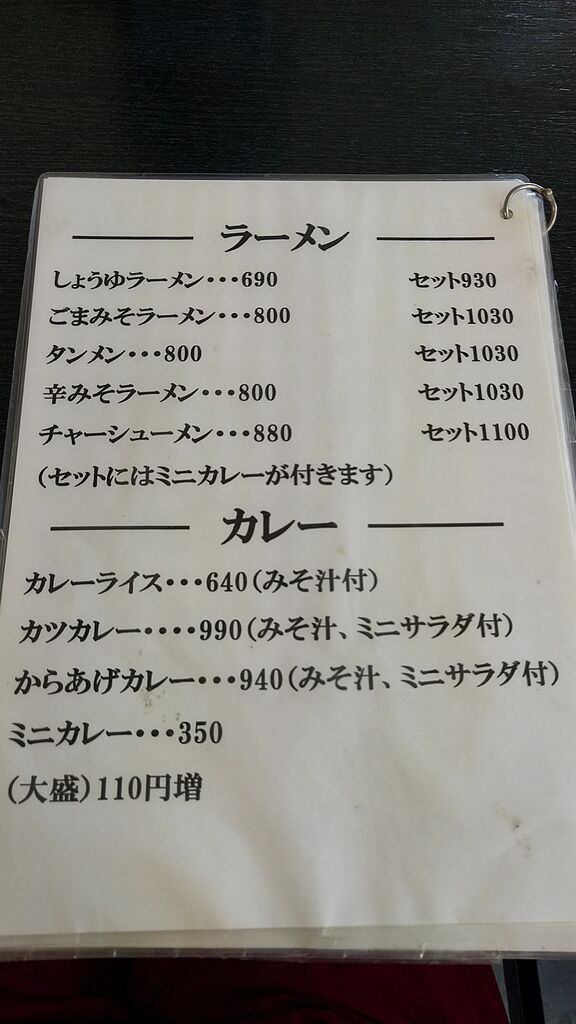 ラーメン
しょうゆラーメン・・・690 セット930
ごまみそラーメン・・・800 セット1030
タンメン・・・800 セット1030
辛みそラーメン・・・800 セット1030
チャーシューメン・・・880 セット1100
(セットにはミニカレーが付きます)
カレー
カレーライス・・・640(みそ汁付)
カツカレー・・・・990(みそ汁、ミニサラダ付)
からあげカレー・・・940(みそ汁、ミニサラダ付)
ミニカレー・・・350
(大盛)110円増